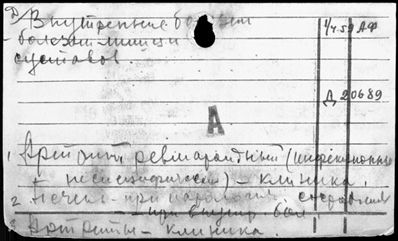 Внутренние болезни
- болезни мышц и
суставов.
1/4 59 АФ
Д 20689
А
1. Артрит ревматоидный (инфекционный
неспецифический) - клиника.
2. Печень - при
при внутр. бол.
3. Артриты - клиника.